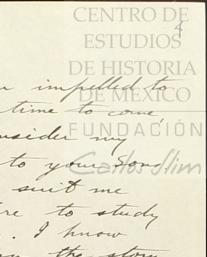 CENTRO DE
ESTUDIOS
DE HISTORIA
DE MÉXICO
FUNDACIÓN
Carlos Slim
4
impelled to
time to come,
consider my
to your Son
suit me
to study
. I know
the story